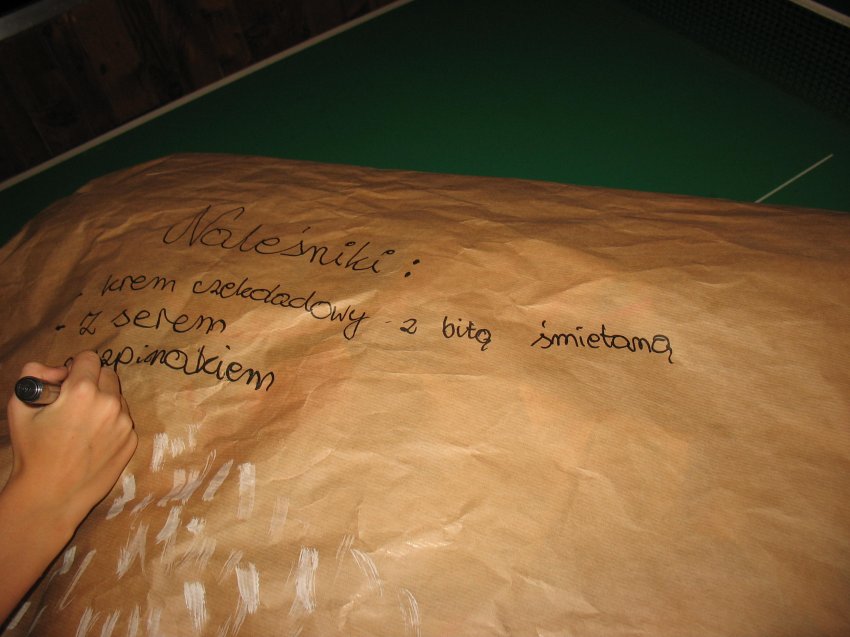 Naleśniki:
- krem czekoladowy z bitą śmietaną
- z serem
szpinakiem